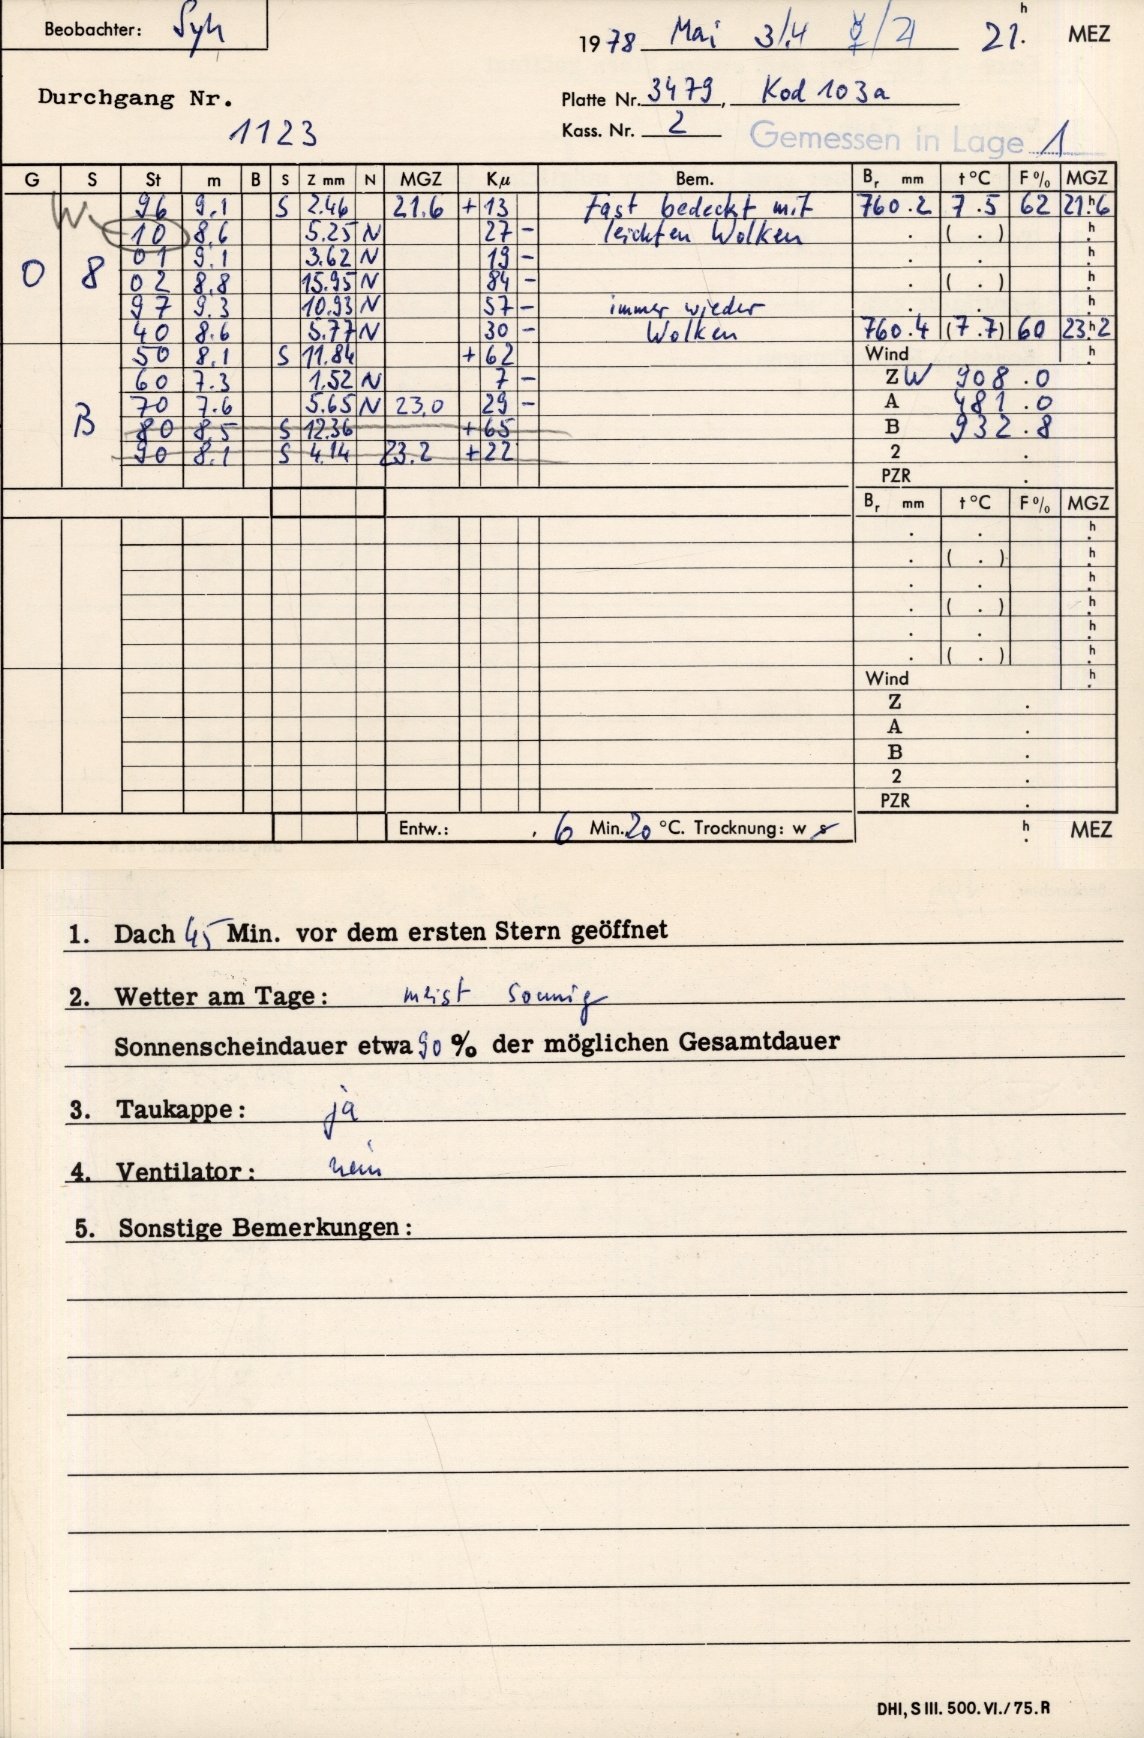 Beobachter: Syh
1978 Mai 3/.4 ☿/♃ 21.h MEZ
Durchgang Nr. 1123
Platte Nr. 3479, Kod 103a
Kass. Nr. 2
Gemessen in Lage 1
G S St m B S Z mm N MGZ Kμ Bem. Br mm t °C F % MGZ
W. 96 9.1 S 2.46 21.6 +13 Fast bedeckt mit 760.2 7.5 62 21.h6
10 8.6 5.25 N 27 – leichten Wolken . ( . ) h
01 9.1 3.62 N 19 – . . h
0 8 02 8.8 15.95 N 84 – . ( . ) h
97 9.3 10.93 N 57 – immer wieder . . h
40 8.6 5.77 N 30 – Wolken 760.4 (7.7) 60 23.h2
50 8.1 S 11.84 +62 Wind h
60 7.3 1.52 N 7 – Z W 908.0
70 7.6 5.65 N 23.0 29 – A 481.0
B 80 8.5 S 12.36 +65 B 932.8
90 8.1 S 4.14 23.2 +22 2 .
PZR .
Br mm t °C F % MGZ
. . h
. ( . ) h
. . h
. ( . ) h
. . h
. ( . ) h
Wind h
Z .
A .
B .
2 .
PZR .
Entw.: , 6 Min. 20 °C. Trocknung: w s h MEZ
1. Dach 45 Min. vor dem ersten Stern geöffnet
2. Wetter am Tage: meist sonnig
Sonnenscheindauer etwa 90 % der möglichen Gesamtdauer
3. Taukappe: ja
4. Ventilator: nein
5. Sonstige Bemerkungen:
DHI, S III. 500. VI./75. R